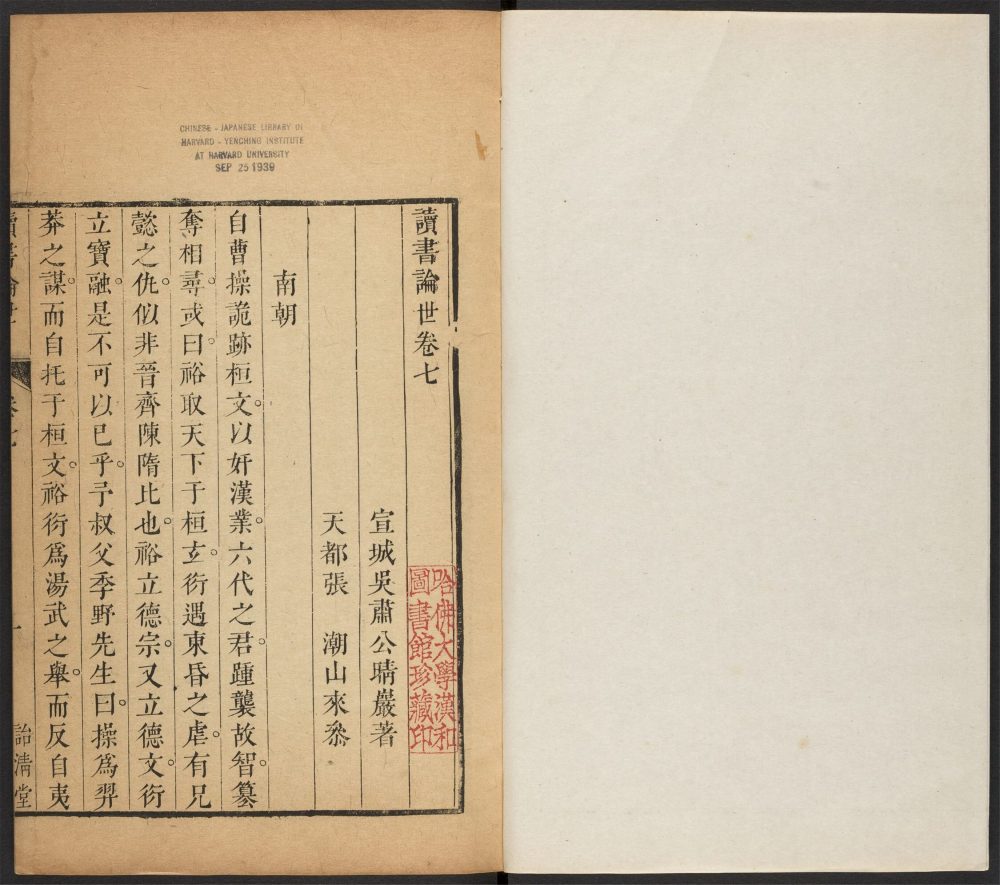 CHINESE - JAPANESE LIBRARY OF
HARVARD - YENCHING INSTITUTE
AT HARVARD UNIVERSITY
SEP 25 1939
讀書論世卷七
哈佛大學漢和
圖書館珍藏印
宣城吳肅公晴巖著
天都張　潮山來叅
南朝
自曹操詭跡桓文。以奸漢業。六代之君。踵襲故智。簒
奪相尋。或曰。裕取天下于桓玄。衍遇東昏之虐。有兄
懿之仇。似非晉齊陳隋比也。裕立德宗。又立德文。衍
立寶融。是不可以已乎。予叔父季野先生曰。操爲羿
莽之謀。而自托于桓文。裕衍爲湯武之舉。而反自夷
讀書論世
卷七
一
詒清堂